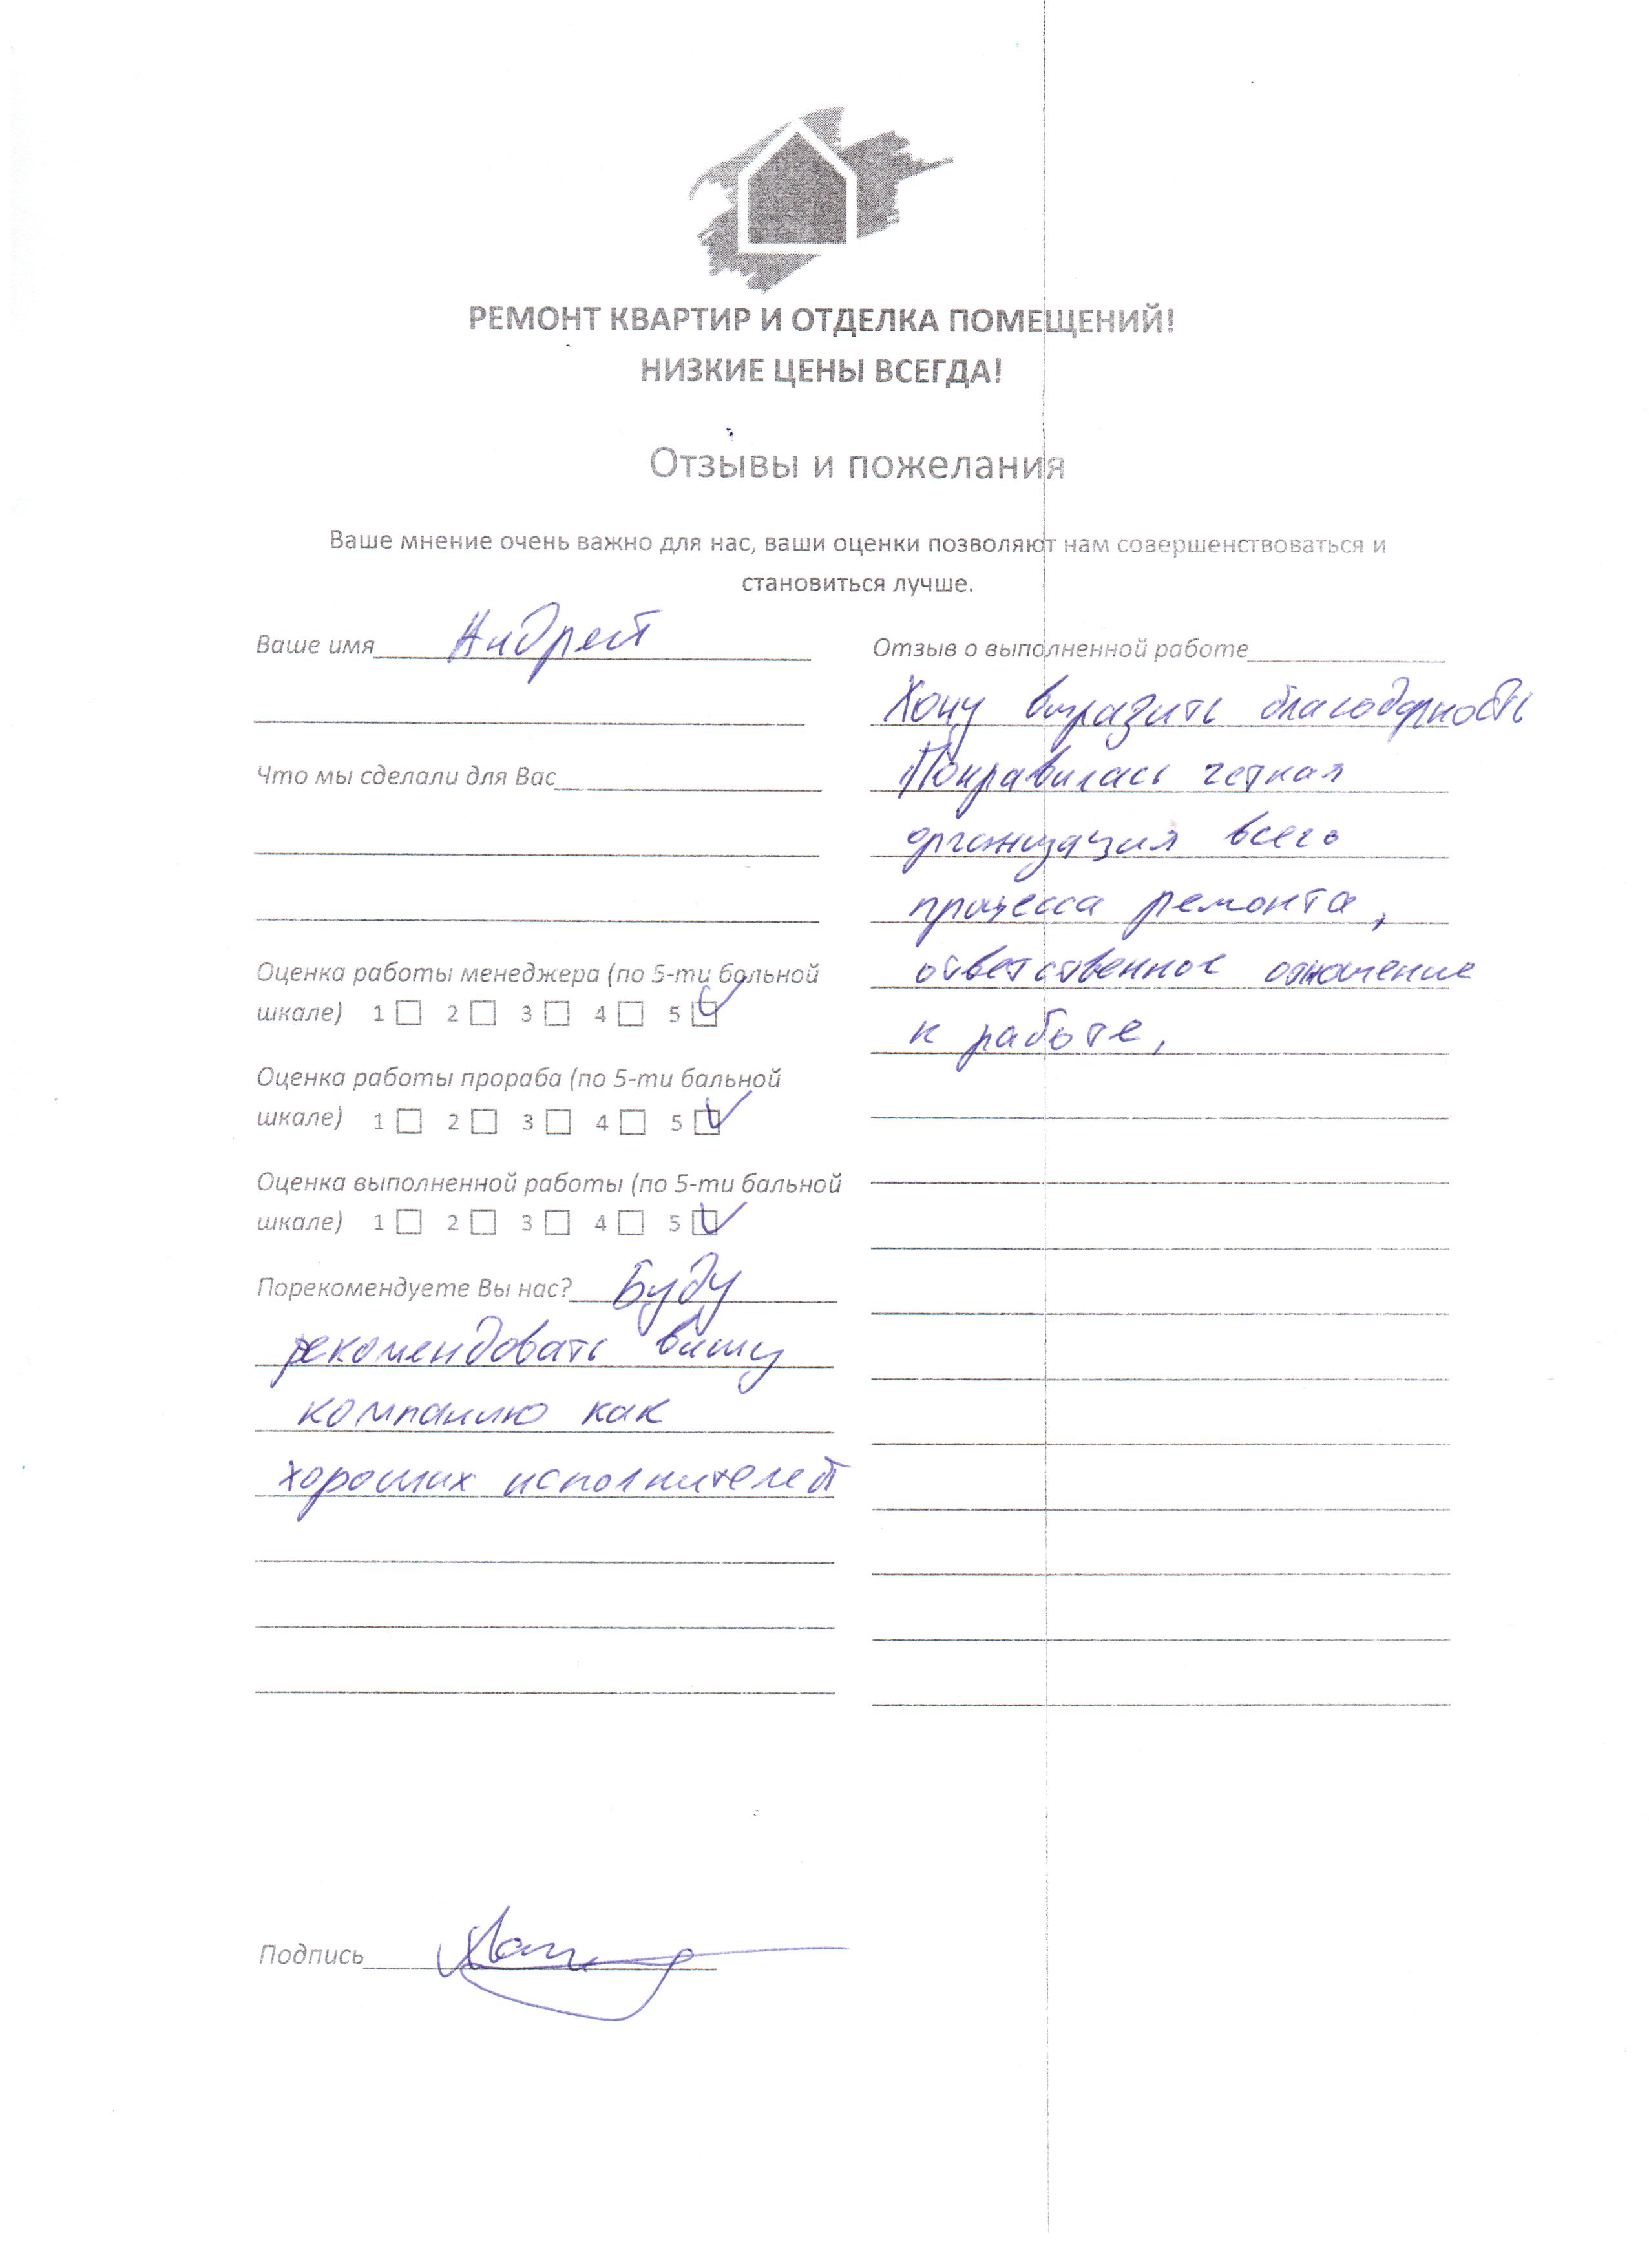 РЕМОНТ КВАРТИР И ОТДЕЛКА ПОМЕЩЕНИЙ!
НИЗКИЕ ЦЕНЫ ВСЕГДА!
Отзывы и пожелания
Ваше мнение очень важно для нас, ваши оценки позволяют нам совершенствоваться и
становиться лучше.
Ваше имя Андрей
Что мы сделали для Вас
Оценка работы менеджера (по 5-ти бальной
шкале) 1 2 3 4 5
Оценка работы прораба (по 5-ти бальной
шкале) 1 2 3 4 5
Оценка выполненной работы (по 5-ти бальной
шкале) 1 2 3 4 5
Порекомендуете Вы нас? Буду
рекомендовать вашу
компанию как
хороших исполнителей
Отзыв о выполненной работе
Хочу выразить благодарность
Понравилась четкая
организация всего
процесса ремонта,
ответственное отношение
к работе,
Подпись